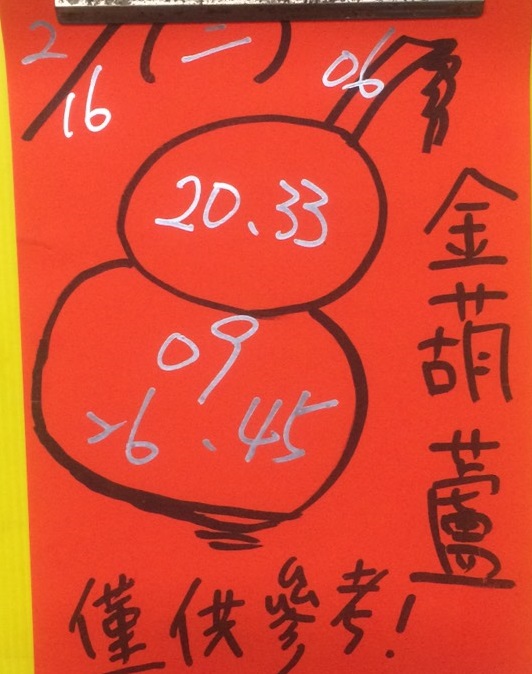 2/16 (二)
06
20、33
09
26.45
金葫蘆
僅供參考!